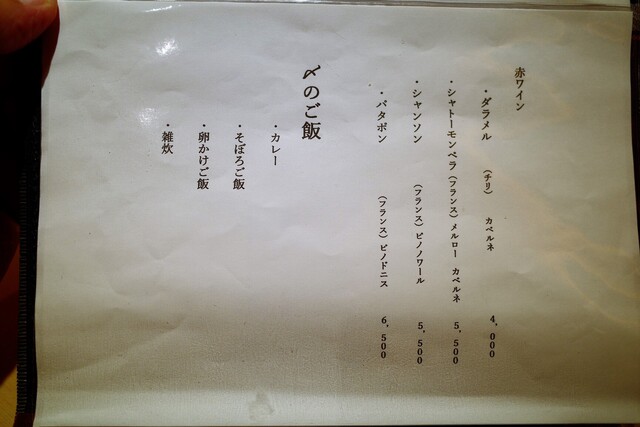 赤ワイン
・ダラメル (チリ) カベルネ 4,000
・シャトーモンペラ (フランス) メルロー カベルネ 5,500
・シャンソン (フランス) ピノノワール 5,500
・パタポン (フランス) ピノドニス 6,500
〆のご飯
・カレー
・そぼろご飯
・卵かけご飯
・雑炊